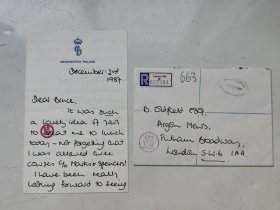 KENSINGTON PALACE
December. 2nd
1987.
Dear Bruce,
It was such
a lovely idea of
to at me to lunch
today – not forgetting that
I was allowed three
courses by Marks & Spencers!
I have been really
looking forward to being
R
663
B. Oldfield ESQ,
Argon Mews,
Fulham Broadway,
London S.W.6 1AA